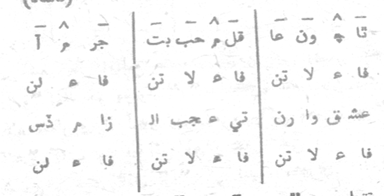 تا چ ون عا | قل م حب بت | جر م آ
فا ع لا تن | فا ع لا تن | فا ع لن
عشـ ق وا رن | تي ع جب الـ | زا م دّس
فا ع لا تن | فا ع لا تن | فا ع لن